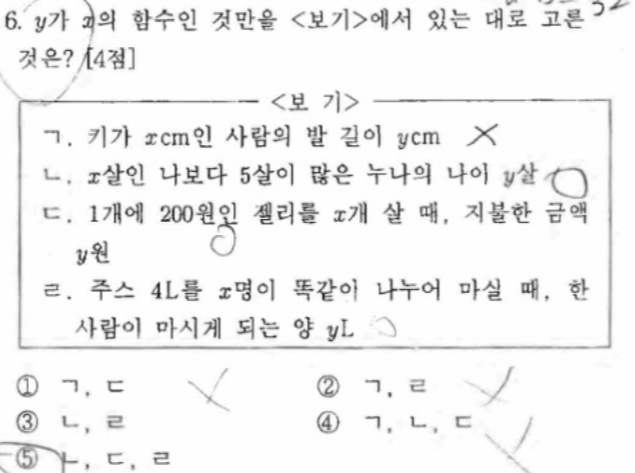 6. y가 x의 함수인 것만을 <보기>에서 있는 대로 고른
것은? [4점]
<보 기>
ㄱ. 키가 xcm인 사람의 발 길이 ycm
ㄴ. x살인 나보다 5살이 많은 누나의 나이 y살
ㄷ. 1개에 200원인 젤리를 x개 살 때, 지불한 금액
y원
ㄹ. 주스 4L를 x명이 똑같이 나누어 마실 때, 한
사람이 마시게 되는 양 yL
① ㄱ, ㄷ ② ㄱ, ㄹ
③ ㄴ, ㄹ ④ ㄱ, ㄴ, ㄷ
⑤ ㄴ, ㄷ, ㄹ